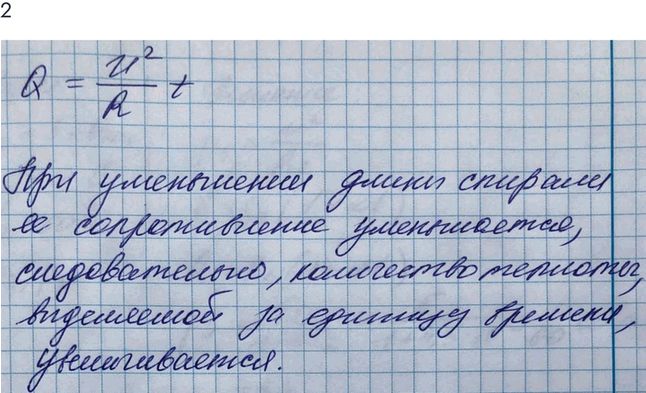 2
Q = U²/R t
При уменьшении длины спирали
ее сопротивление уменьшается,
следовательно, количество теплоты,
выделяемой за единицу времени,
увеличивается.